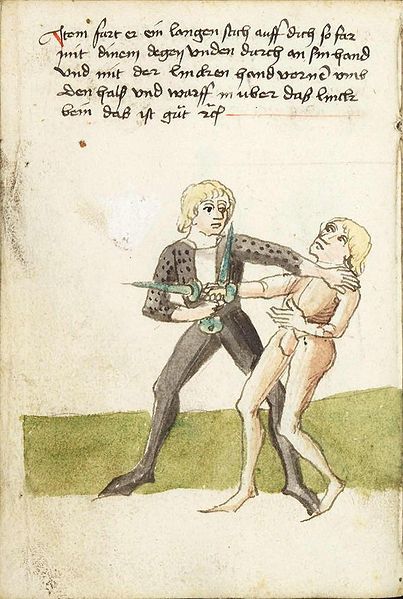 Item fart er ein langen stich auff dich so far
mit dinem degen unden durch an sin hand
Vnd mit der lincken hand vorne vmb
den halß vnd warff in uber daß linck
bein daß ist gůt